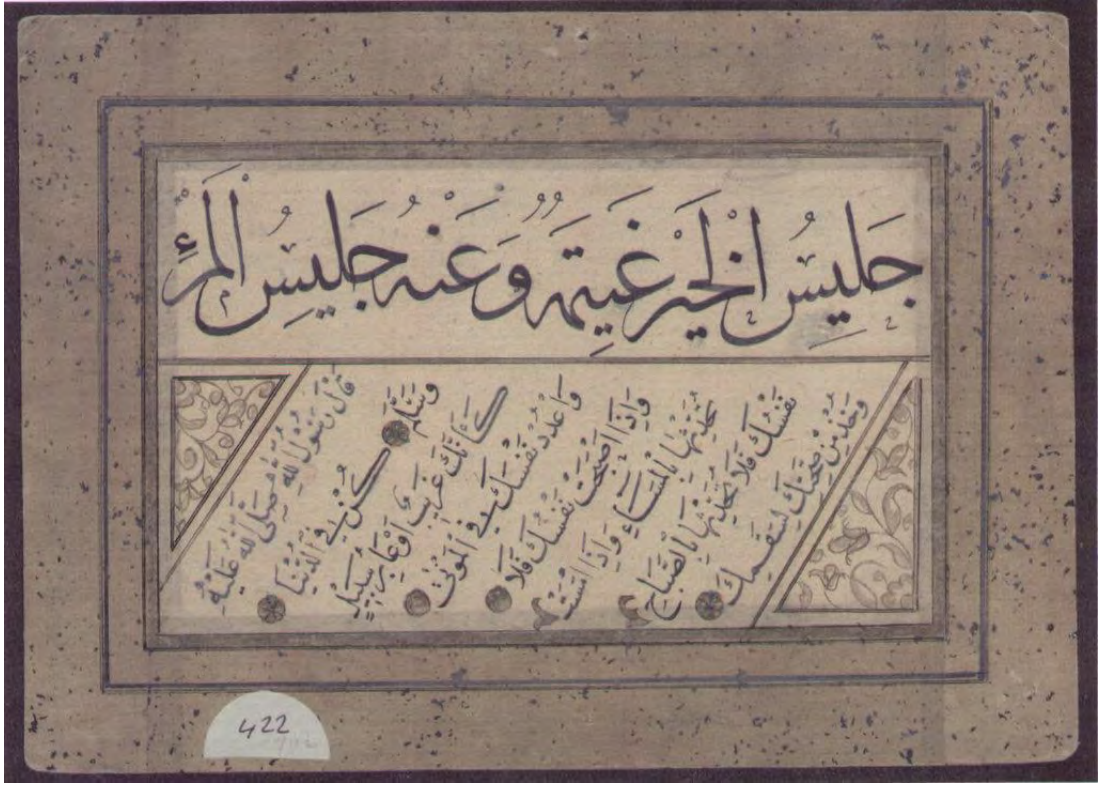 جَلِيسُ الْخَيْرِ غَنِيمَةٌ وَعَنْهُ جَلِيسُ الْمَرْءِ
قَالَ رَسُولُ اللهِ صَلَّى اللهُ عَلَيْهِ
وَسَلَّمَ كُنْ فِي الدُّنْيَا
كَأَنَّكَ غَرِيبٌ اَوْ عَابِرُ سَبِيلٍ
وَاعْدُدْ نَفْسَكَ فِي الْمَوْتَى
وَاِذَا اَصْبَحَتْ نَفْسُكَ فَلَا
تُحَدِّثْهَا بِالْمَسَاءِ وَاِذَا اَمْسَتْ
نَفْسُكَ فَلَا تُحَدِّثْهَا بِالصَّبَاحِ
وَخُذْ مِنْ صِحَّتِكَ لِسَقَمِكَ
422